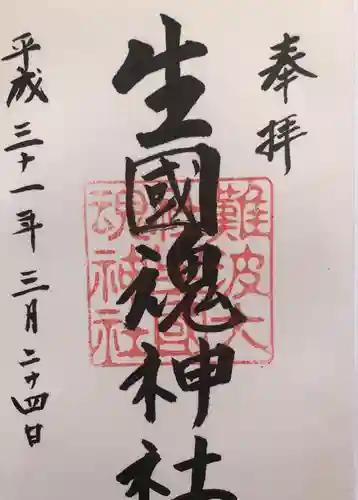 奉拝
生國魂神社
平成三十一年三月二十四日
難波大
魂神社